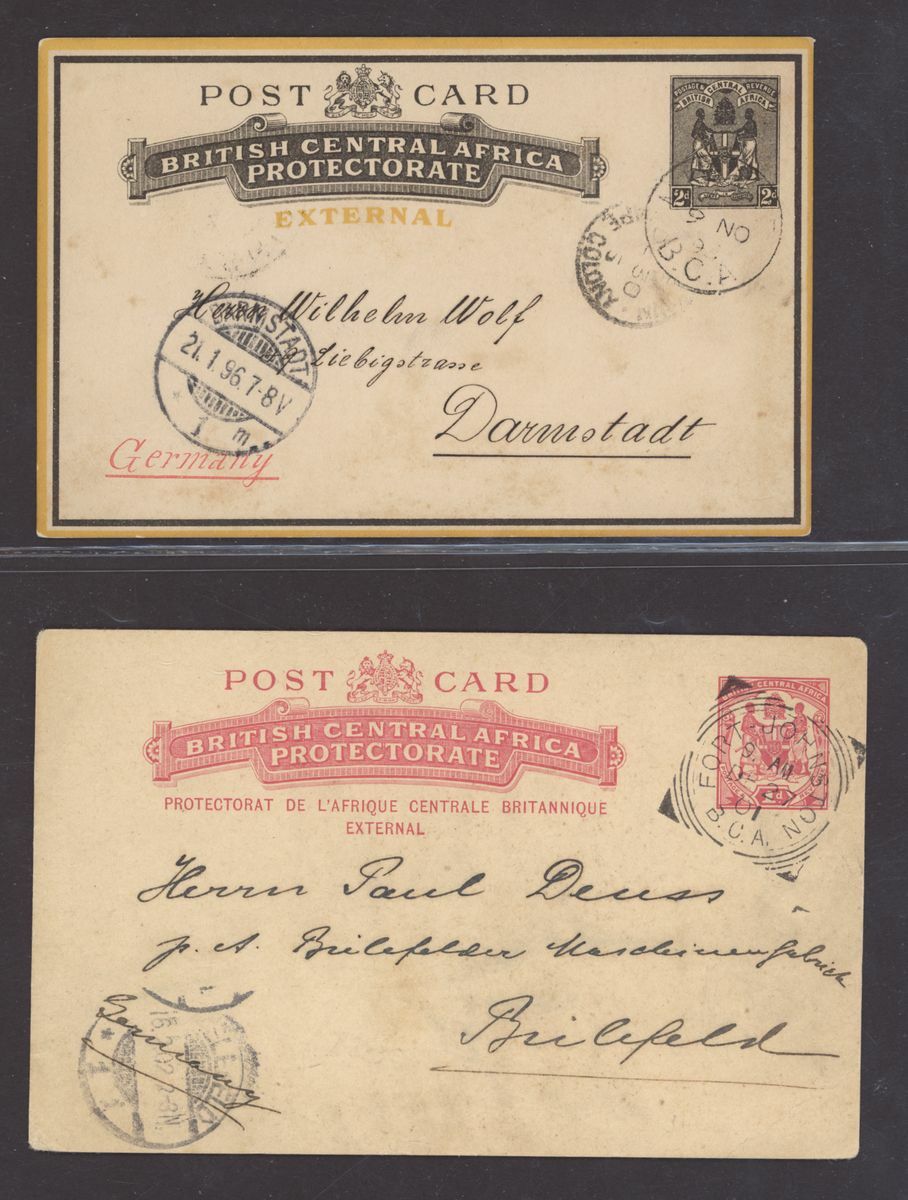 POST CARD
BRITISH CENTRAL AFRICA
PROTECTORATE
EXTERNAL
POSTAGE & REVENUE
BRITISH CENTRAL AFRICA
2d 2d
NO
B.C.A
Herrn Wilhelm Wolf
Liebigstrasse
Darmstadt
Germany
DARMSTADT
21.1.96.7-8V
1 m.
POST CARD
BRITISH CENTRAL AFRICA
PROTECTORATE
PROTECTORAT DE L'AFRIQUE CENTRALE BRITANNIQUE
EXTERNAL
BRITISH CENTRAL AFRICA
FORT-JOHNSTON
9 AM
DE 27
01
B.C.A.
Herrn Paul Deuss
p. A. Bielefelder Maschinenfabrick
Bielefeld
Germany